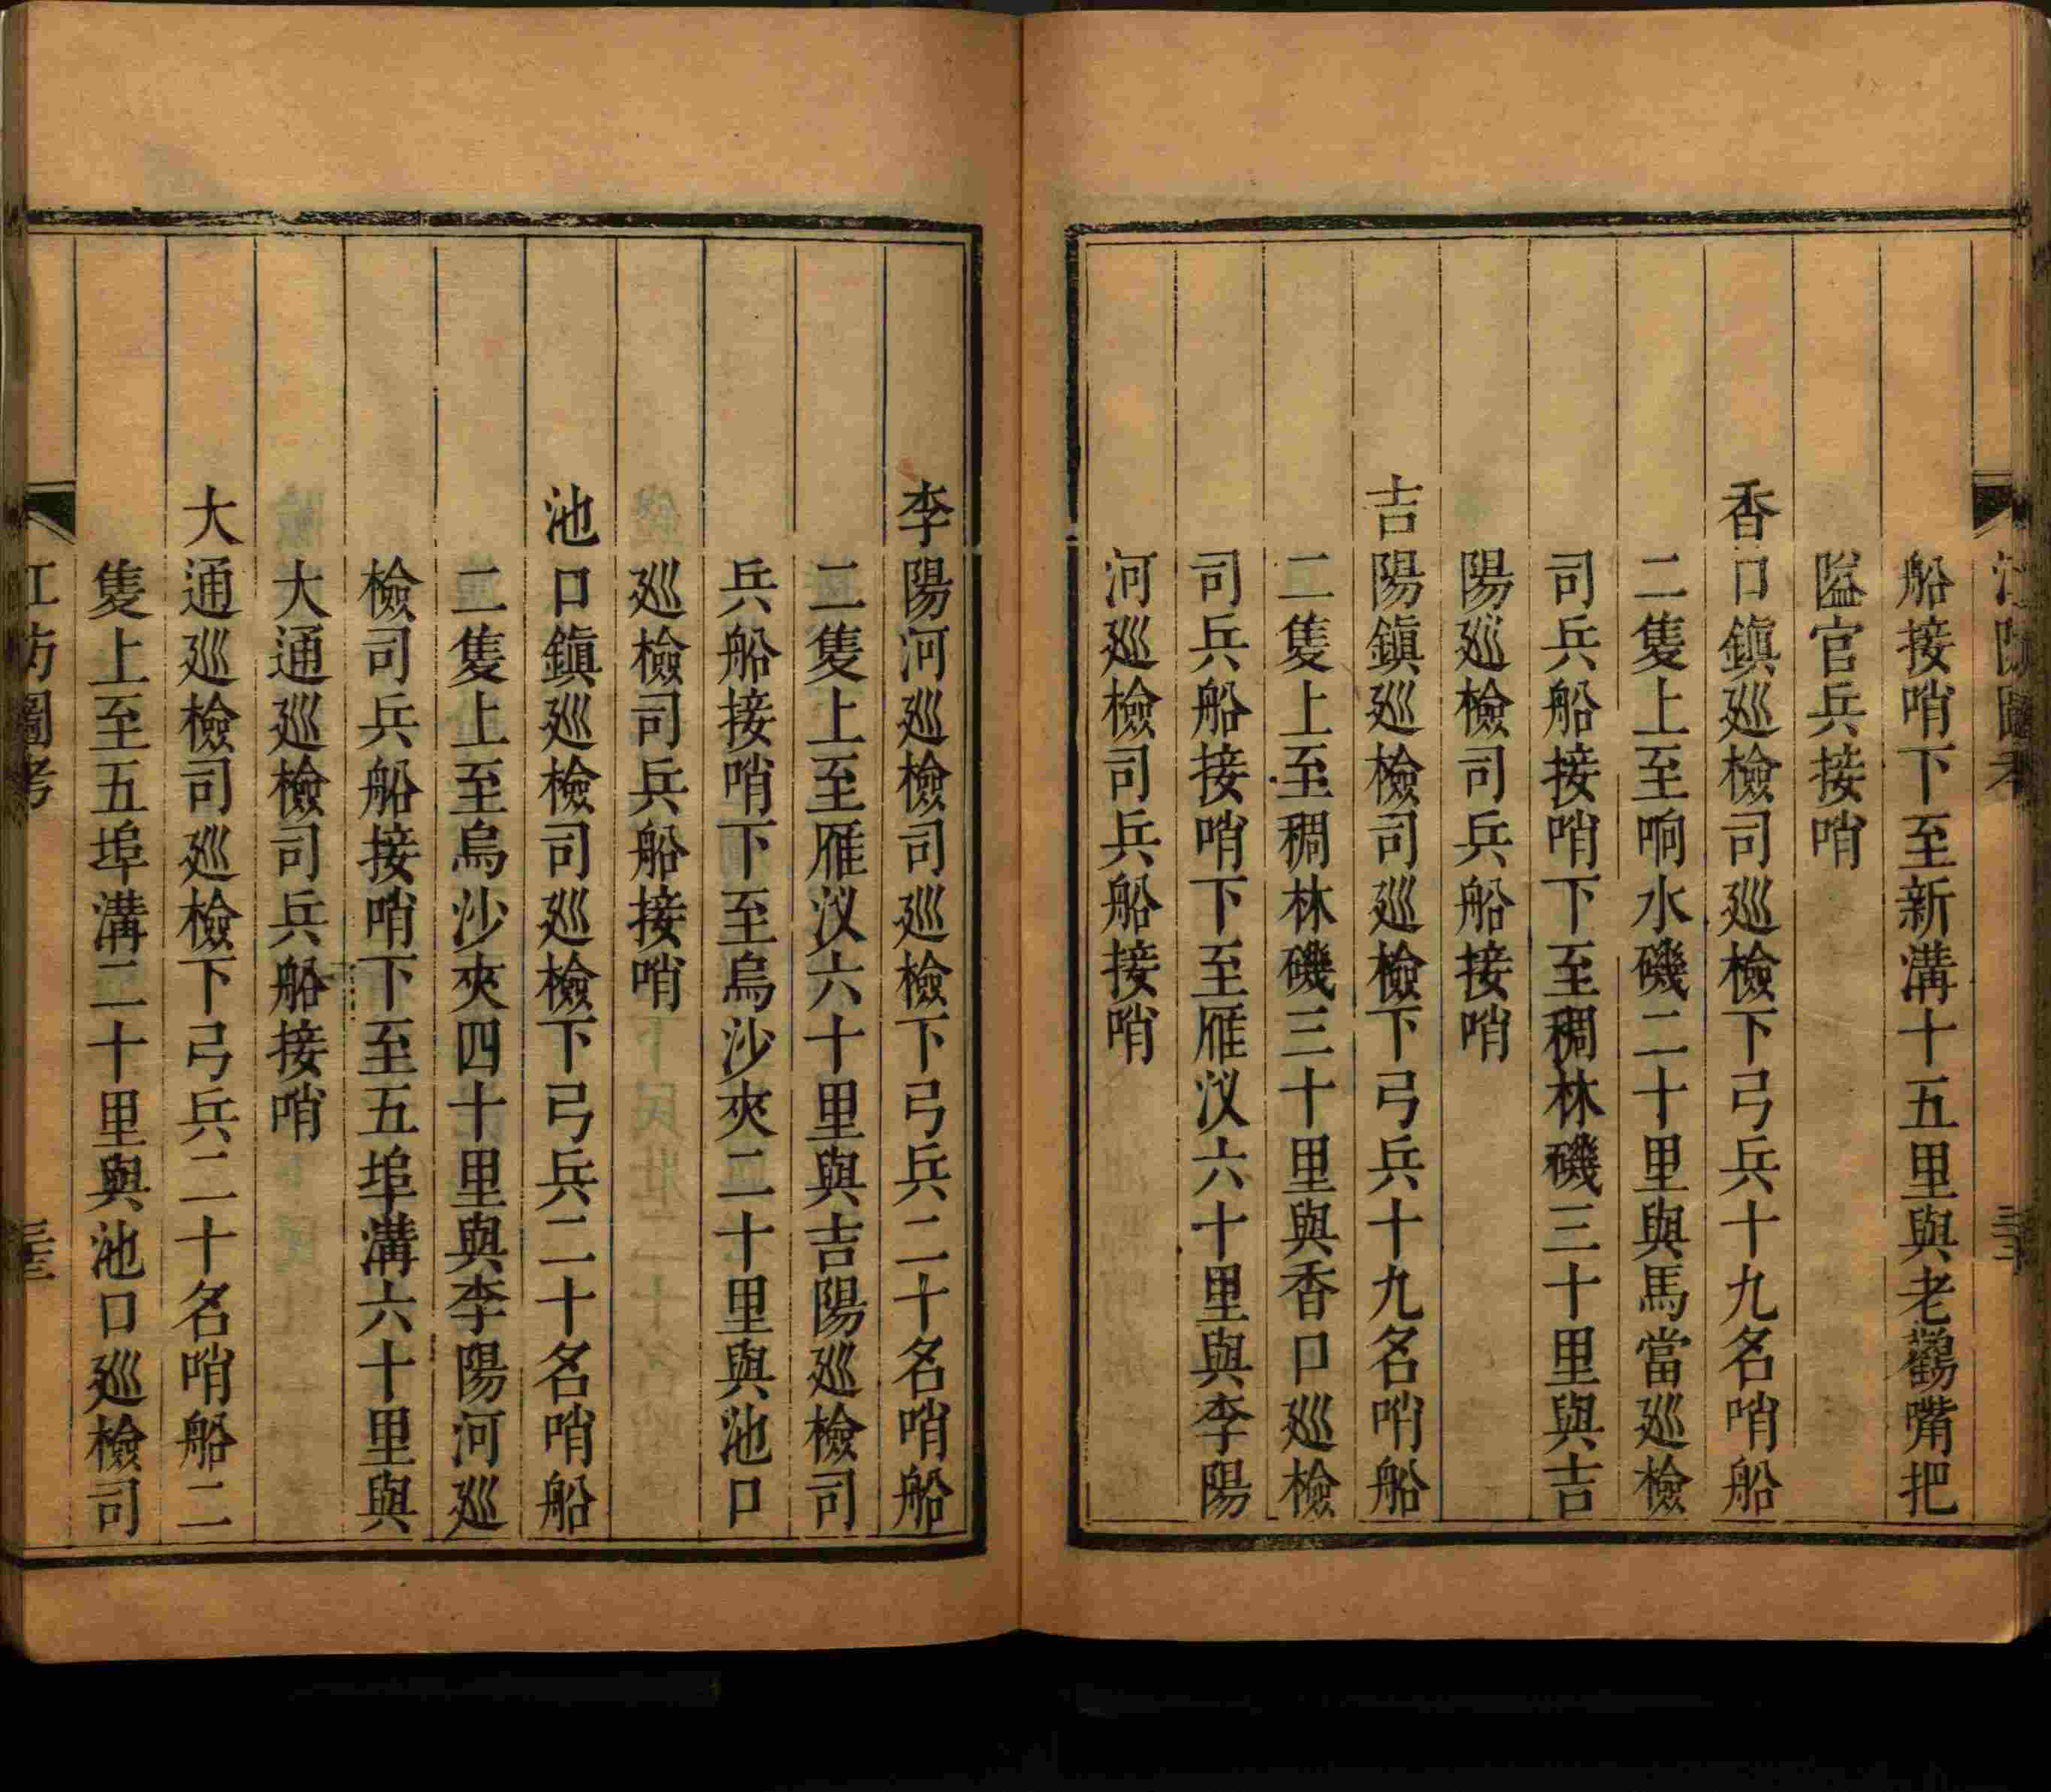 江防圖考
船接哨下至新溝十五里與老鸛嘴把
隘官兵接哨
香口鎭廵檢司廵檢下弓兵十九名哨船
二隻上至响水磯二十里與馬當廵檢
司兵船接哨下至稠林磯三十里與吉
陽廵檢司兵船接哨
吉陽鎭廵檢司廵檢下弓兵十九名哨船
二隻上至稠林磯三十里與香口廵檢
司兵船接哨下至雁汊六十里與李陽
河廵檢司兵船接哨
李陽河廵檢司廵檢下弓兵二十名哨船
二隻上至雁汊六十里與吉陽廵檢司
兵船接哨下至烏沙夾二十里與池口
廵檢司兵船接哨
池口鎭廵檢司廵檢下弓兵二十名哨船
二隻上至烏沙夾四十里與李陽河廵
檢司兵船接哨下至五埠溝六十里與
大通廵檢司兵船接哨
大通廵檢司廵檢下弓兵二十名哨船二
隻上至五埠溝二十里與池口廵檢司
江防圖考